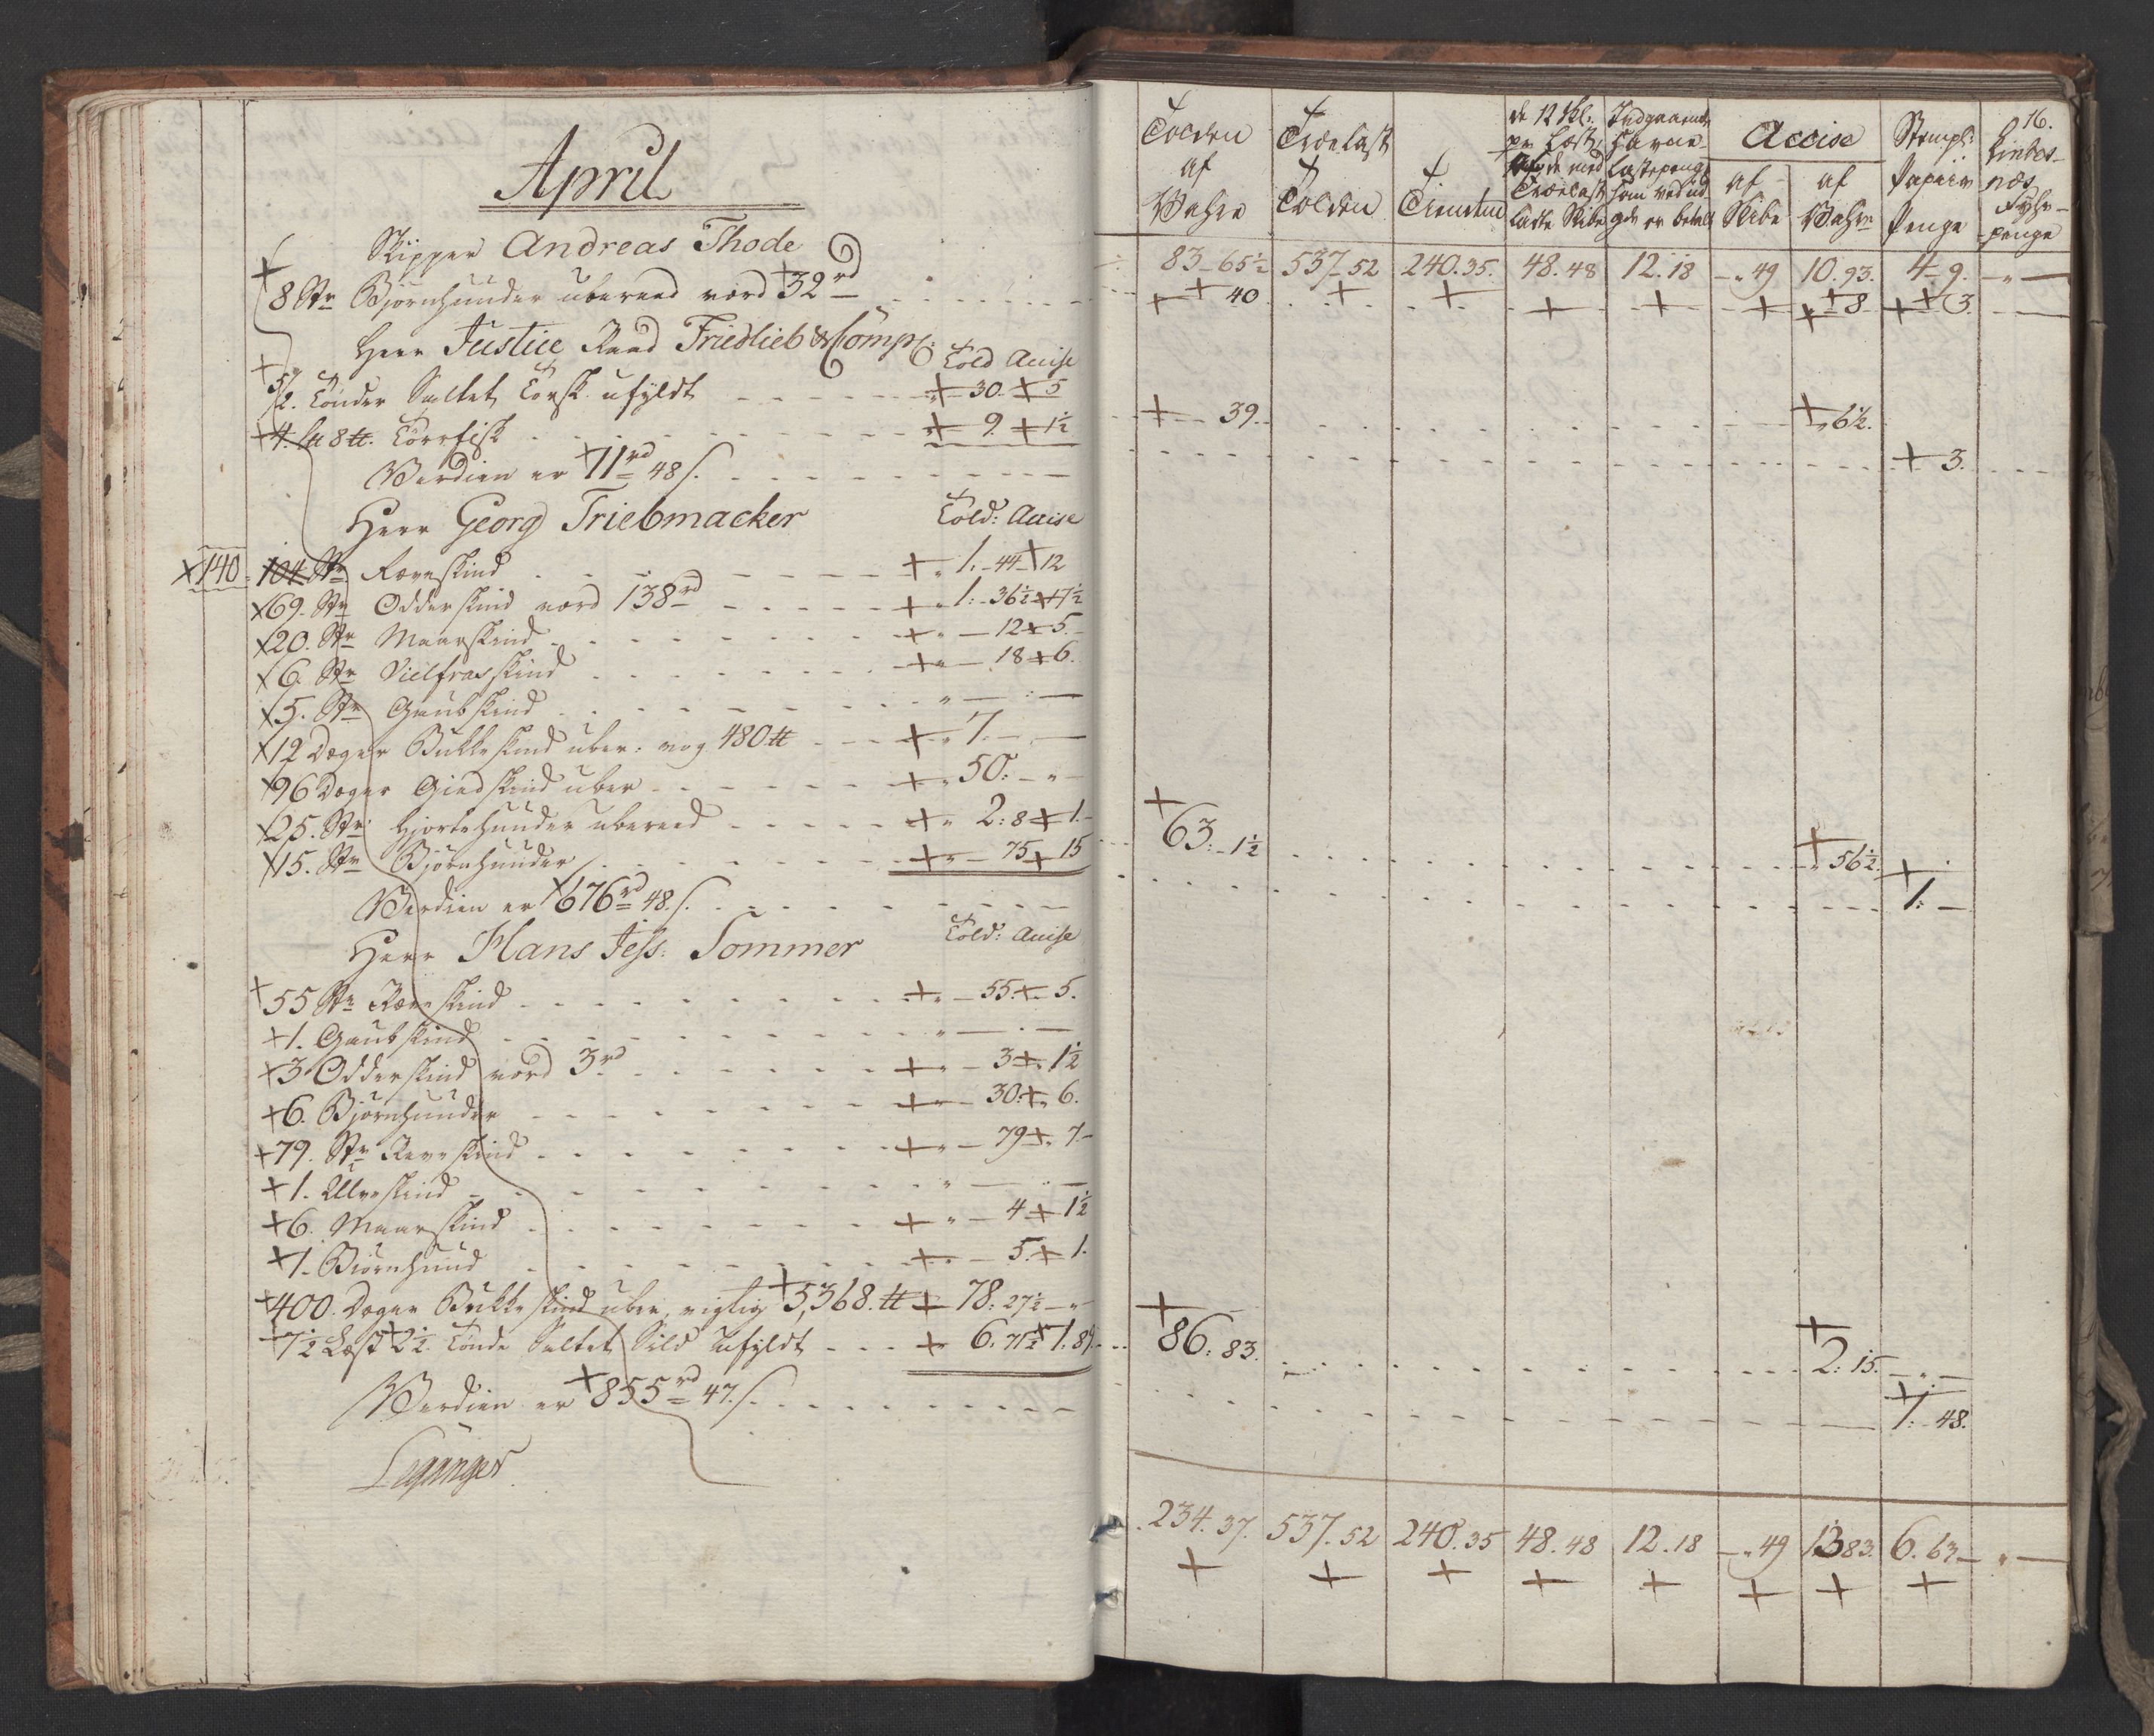 April
Skipper Andreas Thode
8 St Bjørnhuuder ubereed værd 32 rd
Herr Justice Raad Friedlieb & Comp:
Told Accise
5/2. Tønder Saltet Torsk ufyldt 30. 5
4. 8 ℔. Tørfisk 9. 1½
Værdien er 11 rd 48 s.
Herr Georg Triebmacker Told: Accise
140 104 St Ræveskind 1. 44 12
69. St Odderskind værd 138 rd 1: 36½ 7½
20. St Maarskind 12 5.
6. St Vielfrasskind 18 6.
5. St Gaubskind " — : —
12 Deger Bukkeskind uber: vog 480 ℔ 7. —
96 Deger Giedskind uber 50: — " —
25. St. Hjortehuuder ubereed 2: 8 1. —
15. St Bjørnhuuder 75 15
Værdien er 676 rd 48. s.
Herr Hans Jess: Sommer Told: Accise
55 St Ræveskind 55. 5.
1. Gaubskind " — . —
3 Odderskind værd 3 rd 3 1½
6. Bjørnhuuder 30. 6.
79. St Ræveskind 79. 7. —
1. Ulveskind " — . —
6. Maarskind 4 1½
1. Biørnhuud 5. 1.
400. Deger Bukkeskind uber, vigtig 5,368. ℔ 78: 27½ — "
7½ Læst 2½ Tønde Saltet Sild ufyldt 6. 71½ 1. 89
Værdien er 855 rd 47. s.
Leganger
16.
Tolden af Wahre
Trælast Tolden
Tienden
de 12 Skl: pr Læst af de med Trælast ladte Skibe
Indgaaende Havne- Lastepenge som ved udg. er betalt
Accise
af Skibe
af Wahre
Stempl: Papiir Penge
Lindesnæs Fyhr-penge
83 - 65½ 537 - 52 240. 35. 48. 48 12. 18 " 49 10. 93. 4 - 9. — " —
40 8 3.
39. 6½.
3.
63: - 1½ 56½.
1: —
86: 83. 2: 15. — " —
1: 48.
234. 37. 537. 52 240. 35 48. 48 12. 18 — " 49 13 83. 6. 63 — " —